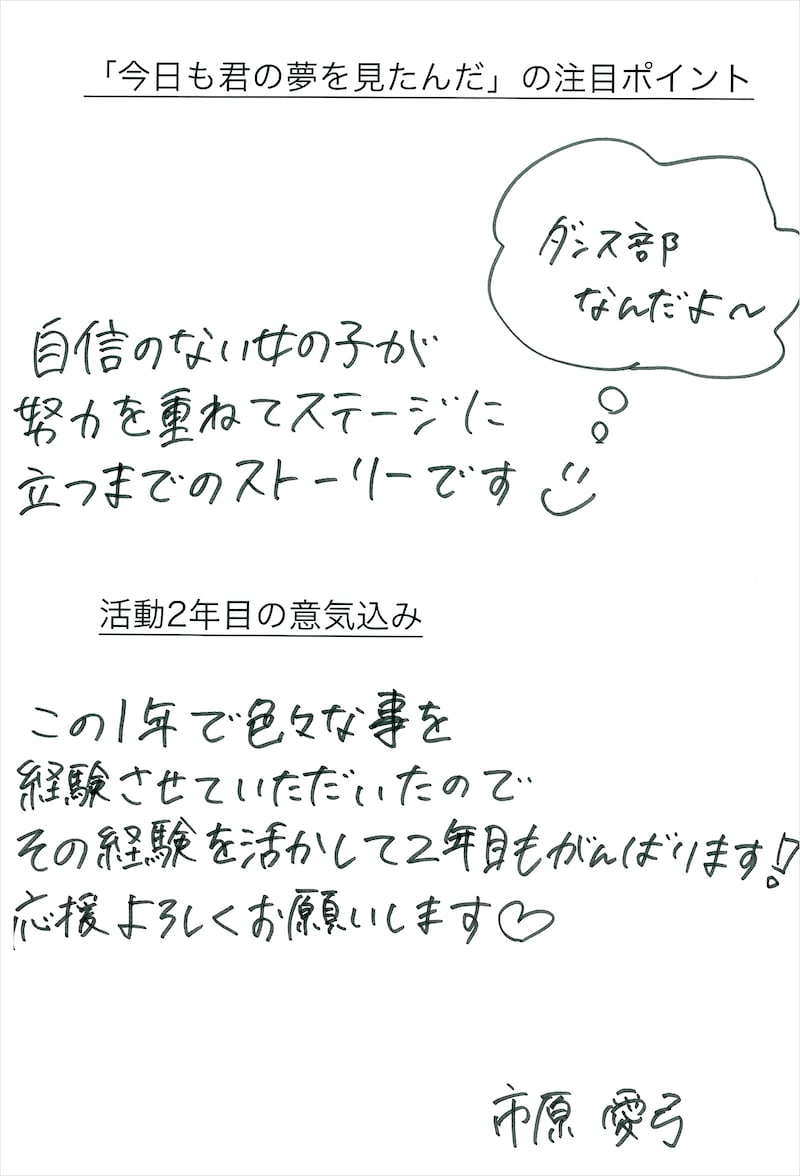 「今日も君の夢を見たんだ」の注目ポイント
ダンス部
なんだよ〜
自信のない女の子が
努力を重ねてステージに
立つまでのストーリーです
活動2年目の意気込み
この1年で色々な事を
経験させていただいたので
その経験を活かして2年目もがんばります!
応援よろしくお願いします♡
市原 愛弓